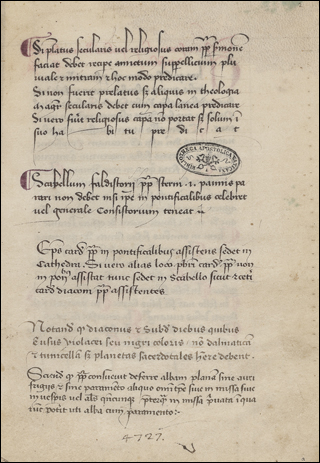 Si platus secularis vel religiosus coram pp sermonē
faciat debet recipe amictum suppellicium plu
uiale et mitram et hoc modo predicare.
Si non fuerit prelatus si aliquis in theologia
magr secularis debet cum capa lanea predicare
Si vero fuerit religiosus capā nō portat sz solum ī
suo ha bi tu pre di c a t
BIBLIOTHECA APOSTOLICA VATICANA
Scabellum faldistorii pp sterni et pannis pa
rari non debet nisi ipe in pontificalibus celebret
vel generale Consistorium teneat
Eps card pp in pontificalibus assistens sedet in
Cathedra Si vero alias loco pbri card pp non
in pon assistat tunc sedet in Scabello sicut et ceti
card diaconi pp assistentes
Notand q diaconus et Subd diebus quibus
est usus violacei seu nigri coloris nō dalmaticā
et tunicellā sz planetas sacerdotales habere debent.
Sciend q pp consueuit deferre albam planā sine auri
frigiis et sine paramēto aliquo omi tpe siue in missa siue
in vespis vel als qncunque pterq in missa puata ī qua
potit uti alba cum paramento
4727.